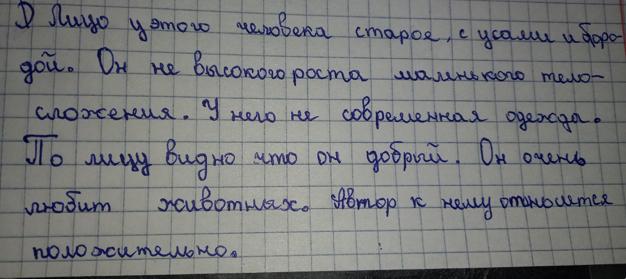 1) Лицо у этого человека старое, с усами и боро-
дой. Он не высокого роста маленького тело-
сложения. У него не современная одежда.
По лицу видно что он добрый. Он очень
любит животных. Автор к нему относится
положительно.